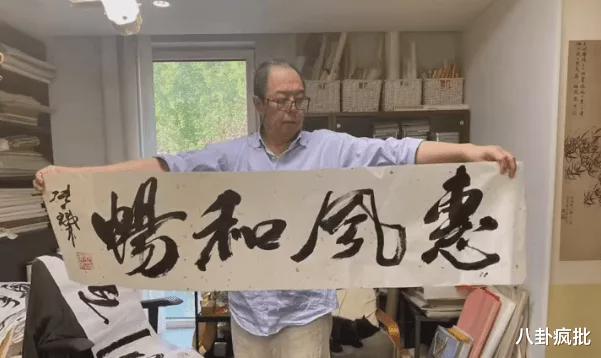 惠风和暢
八卦疯批